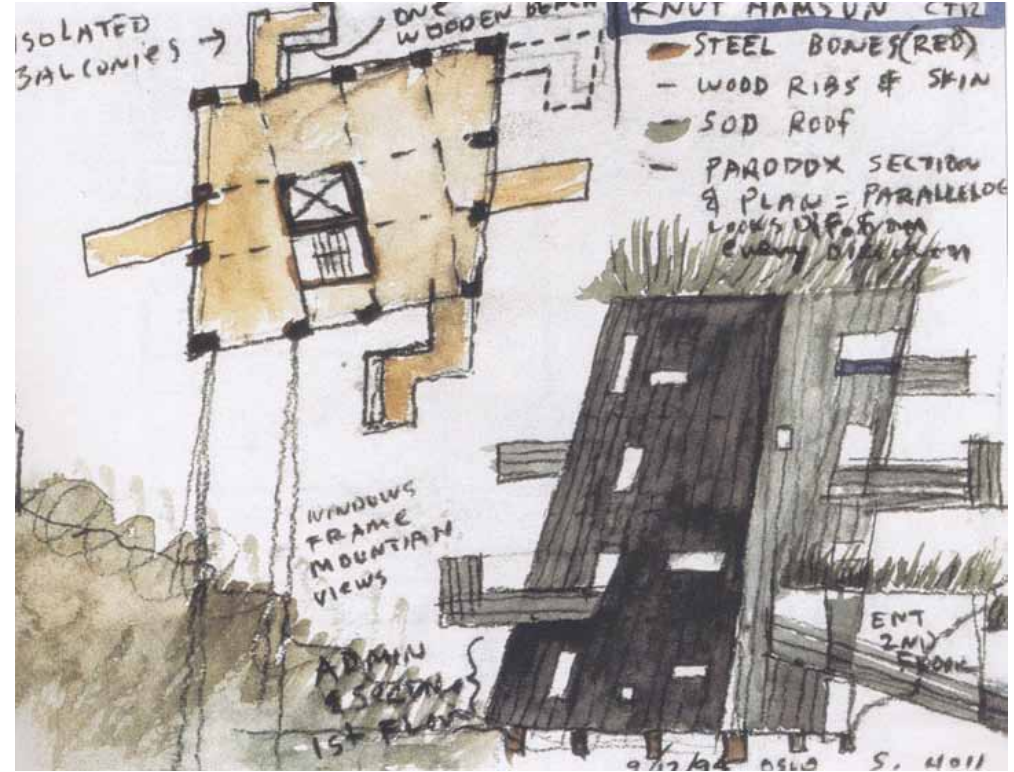 ISOLATED
BALCONIES →
ONE
WOODEN BENCH
KNUT HAMSUN CTR
STEEL BONES (RED)
- WOOD RIBS & SKIN
SOD ROOF
- PARODOX SECTION
& PLAN = PARALLELOG
LOOKS DIF. from
every DIRECTION
WINDOWS
FRAME
MOUNTIAN
VIEWS
ENT
2ND
FLOOR
ADMIN
1st FLOOR
9/12/94 OSLO S. HOLL